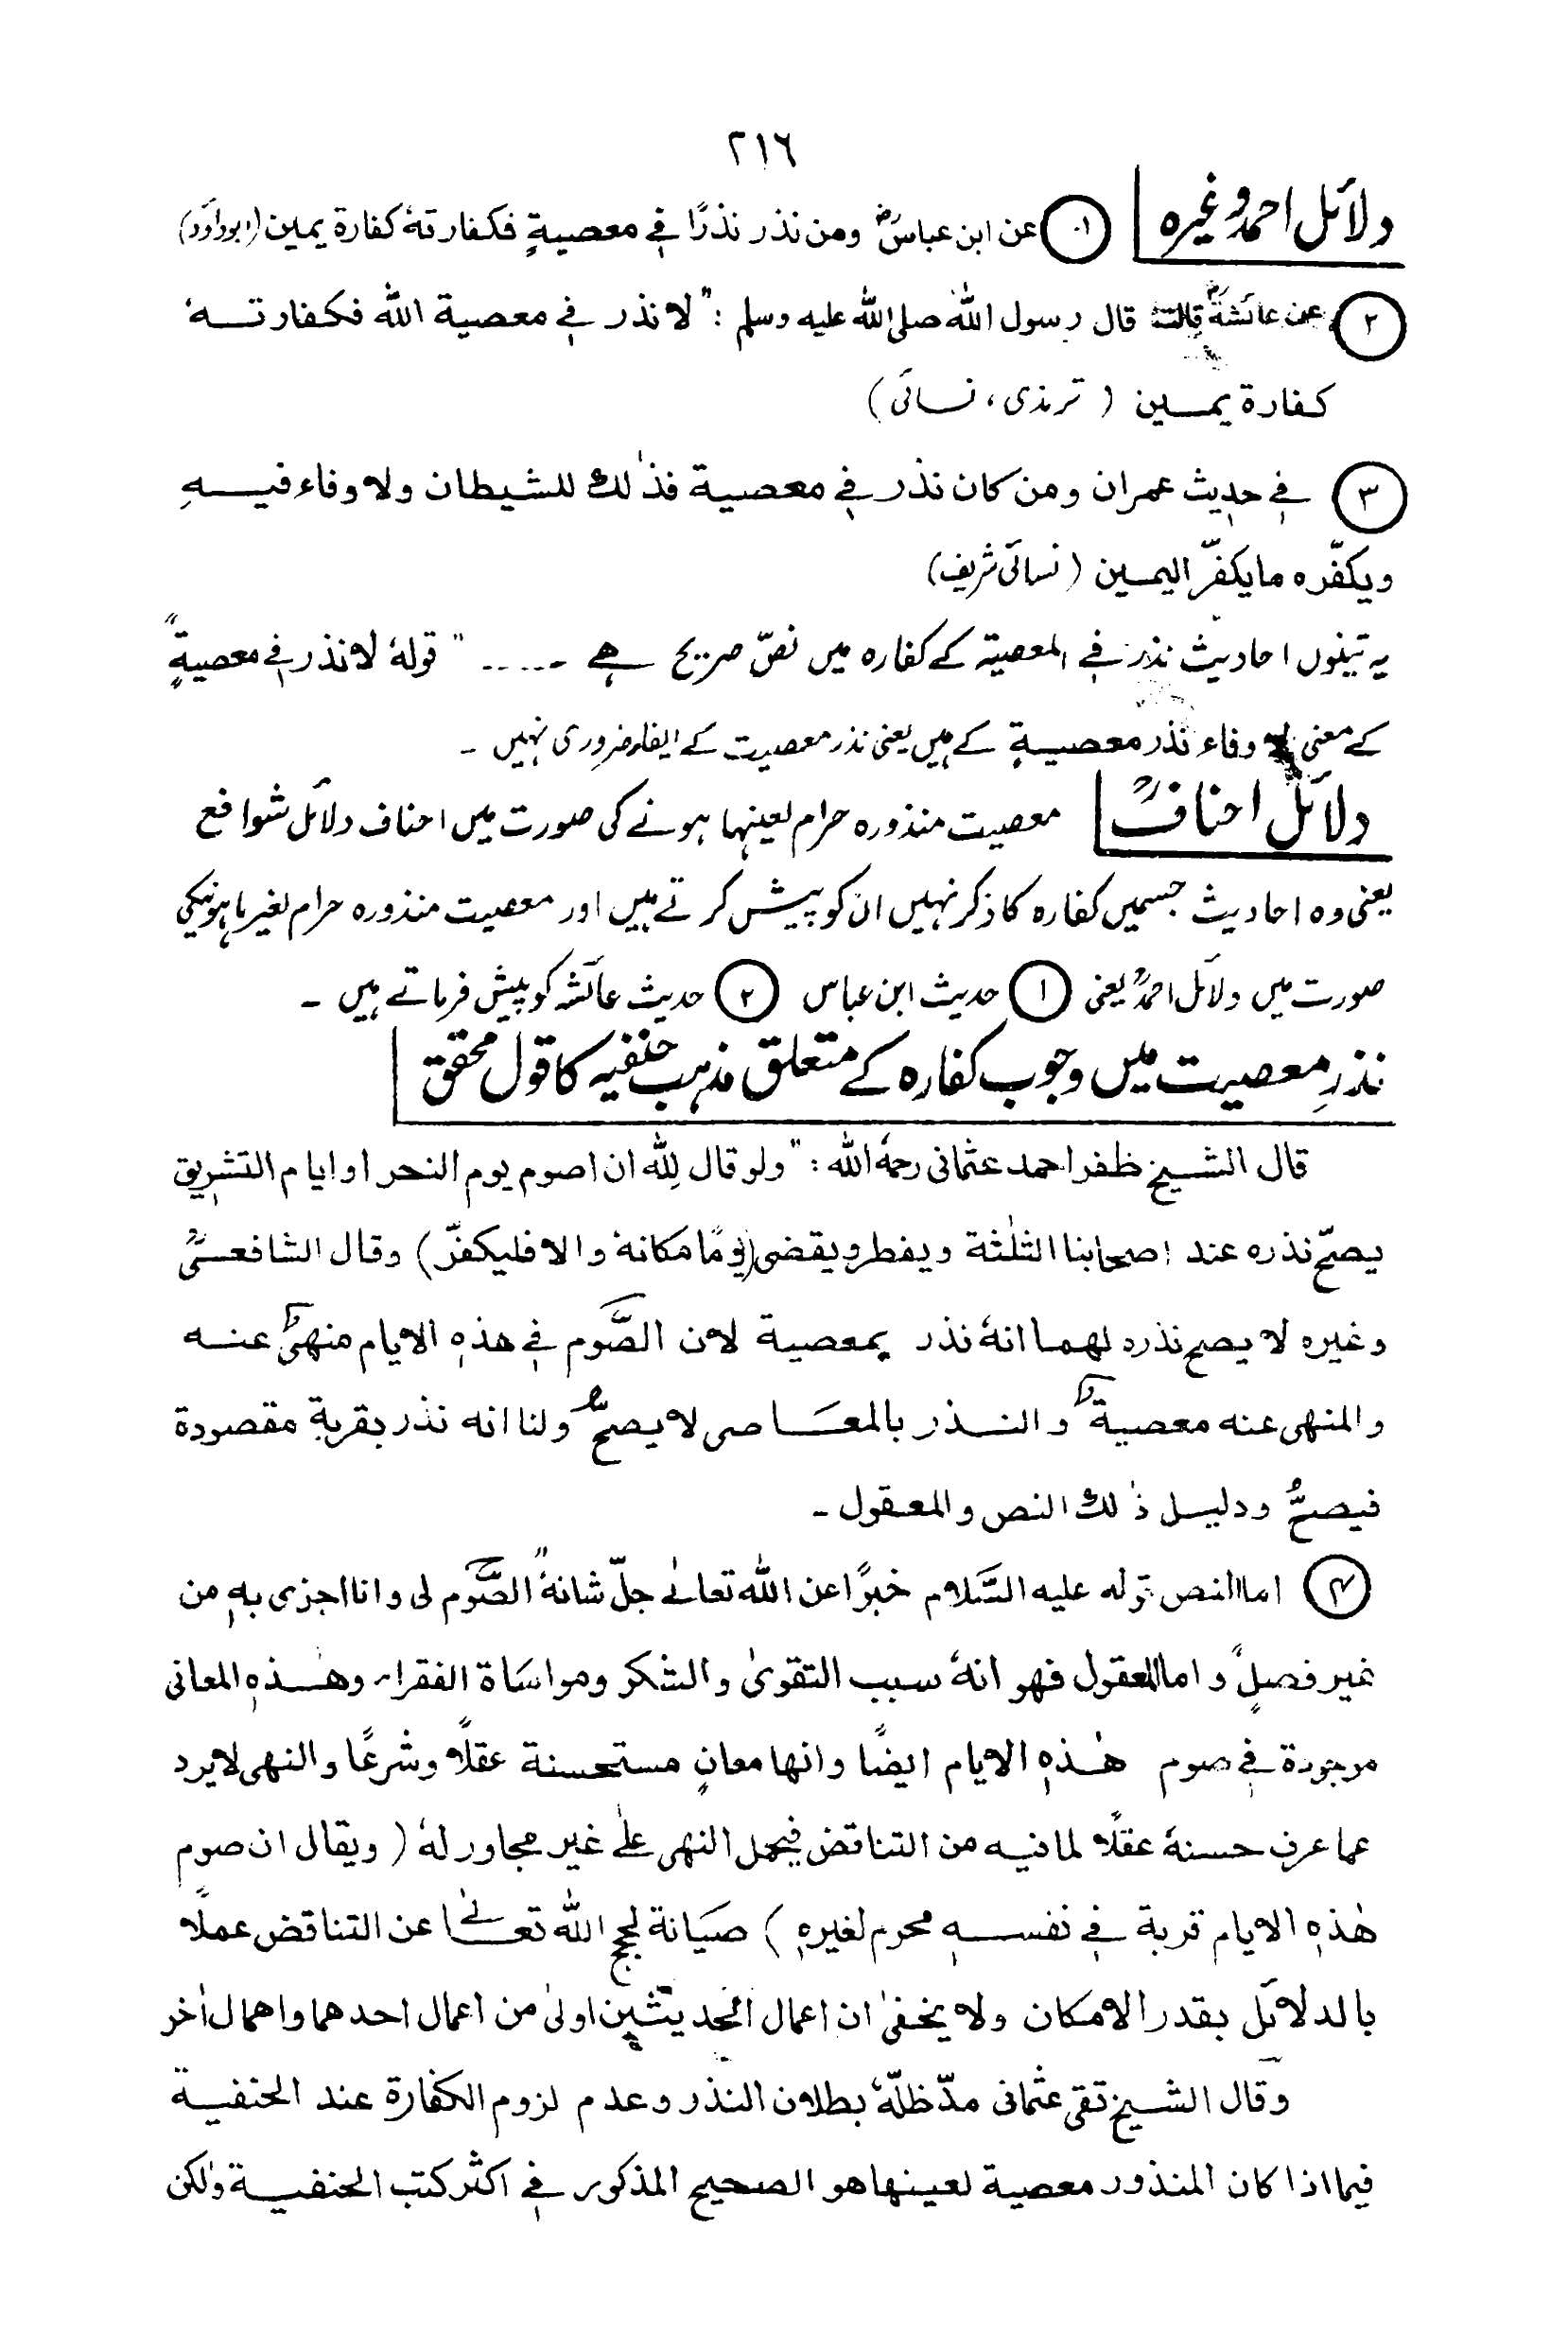 ٢١٦
دلائل احمدؒ وغیرہ ① عن ابن عباسؓ ومن نذر نذرًا فی معصیةٍ فکفارتهٗ کفارة یمین (ابوداؤد)
② عن عائشةؓ قالت قال رسول اللهؐ صلی الله علیه وسلم : "لا نذر فی معصیة الله فکفارتهٗ
کفارة یمین ( ترمذی ، نسائی )
③ فی حدیث عمران ومن کان نذر فی معصیة فذٰلك للشیطان ولا وفاء فیهِ
ویکفّره مایکفّر الیمین ( نسائی شریف )
یہ تینوں احادیث نذر فی المعصیۃ کے کفارہ میں نصّ صریح ہے ۔۔۔۔۔ " قولهٗ لا نذر فی معصیةٍ "
کے معنی لا وفاء نذر معصیةٍ کے ہیں یعنی نذر معصیت کے ایفاء ضروری نہیں ۔
دلائل احنافؒ معصیت منذورہ حرام لعینہا ہونے کی صورت میں احناف دلائل شوافع
یعنی وہ احادیث جسمیں کفارہ کا ذکر نہیں ان کو پیش کرتے ہیں اور معصیت منذورہ حرام لغیرہا ہونیکی
صورت میں دلائل احمدؒ یعنی ① حدیث ابن عباس ② حدیث عائشہ کو پیش فرماتے ہیں ۔
نذرِ معصیت میں وجوب کفارہ کے متعلق مذہب حنفیہ کا قول محقق
قال الشیخ ظفر احمد عثمانی رحمهٗ الله : "ولو قال لِلّٰه ان اصوم یوم النحر او ایام التشریق
یصحّ نذره عند اصحابنا الثلٰثة ویفطر ویقضی (یومًا مکانهٗ والا فلیکفّر) وقال الشافعیؒ
وغیره لا یصح نذره لهما انهٗ نذر بمعصیة لان الصَّوم فی هذهِ الایام منهیٌ عنه
والمنهی عنه معصیة والنذر بالمعَاصی لا یصحّ ولنا انه نذر بقربة مقصودة
فیصحُّ ودلیل ذٰلك النص والمعقول ۔
④ اما النص قوله علیه السَّلام خبرًا عن الله تعالیٰ جلّ شانهٗ "الصَّوم لی وانا اجزی بهِ من
غیر فصلٍ" و اما المعقول فهو انهٗ سبب التقویٰ والشکر ومواسَاة الفقراء وهٰذهِ المعانی
موجودة فی صوم هٰذهِ الایام ایضًا وانها معانٍ مستحسنة عقلًا وشرعًا والنهی لا یرد
عما عرف حسنهٗ عقلًا لما فیه من التناقض فیحمل النهی علیٰ غیر مجاور لهٗ ( ویقال ان صوم
هٰذهِ الایام قربة فی نفسهِ محرم لغیرهِ ) صیَانة لحجج الله تعالیٰ عن التناقض عملًا
بالدلائل بقدر الامکان ولا یخفیٰ ان اعمال الحدیثین اولیٰ من اعمال احدهما واهمال اٰخر
وقال الشیخ تقی عثمانی مدّ ظلّهٗ بطلان النذر وعدم لزوم الکفارة عند الحنفیة
فیما اذا کان المنذور معصیة لعینها هو الصحیح المذکور فی اکثر کتب الحنفیة ولٰکن